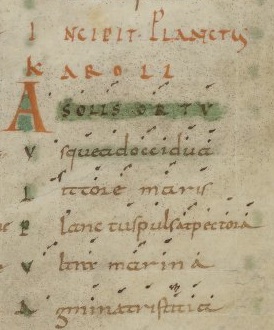 INCIPIT PLANCTUS
KAROLI
A SOLIS ORTU
Usque ad occidua
Litore maris
Planctus pulsat pectora
Ultra marina
Agmina tristitia